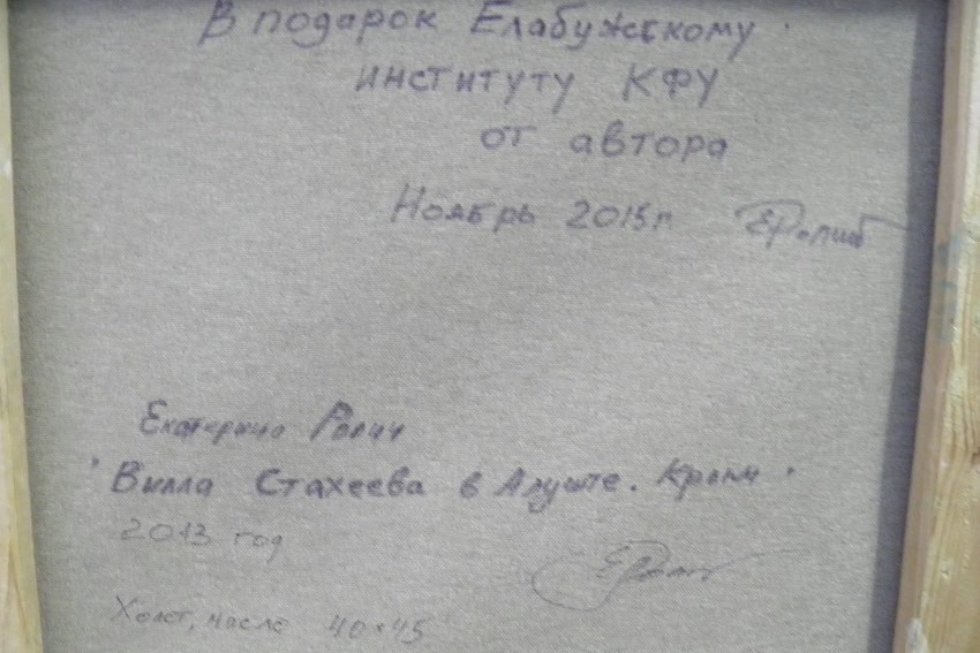 В подарок Елабужскому
институту КФУ
от автора
Ноябрь 2015г
Екатерина Ролич
"Вилла Стахеева в Алуште. Крым"
2013 год
Холст, масло 40×45